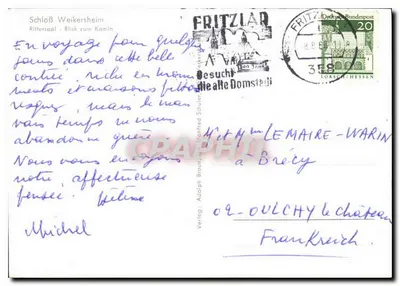 Schloß Weikersheim
Rittersaal - Blick zum Kamin
En voyage pour quelques
jours dans cette belle
contrée, riche en monu
ments et maisons pitto
resques, mais le mau
vais temps ne nous
abandonne guère.
Nous vous envoyons
notre affectueuse
pensée. Hélène
Michel
Verlag: Adolph
FRITZLAR
Besucht
die alte Domstadt
FRITZLAR
358
Deutsche Bundespost
20
LORSCH/HESSEN
M et Mme LEMAIRE-WARIN
à Brécy
02-OULCHY le château
Frankreich
CRAPHO